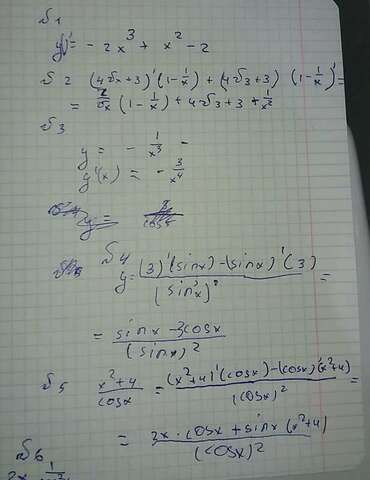 №1
y' = - 2x³ + x² - 2
№2 (4√x+3)'(1-1/x) + (4√3+3) (1-1/x)' =
= 2/√x (1-1/x) + 4√3+3 + 1/x²
№3
y = - 1/x³ -
y'(x) = - 3/x⁴
y =
№4
y = (3)'(sinx)-(sinx)'(3) / (sinx)² =
= sinx - 3cosx / (sinx)²
№5 x²+4 / cosx = (x²+4)'(cosx)-(cosx)'(x²+4) / (cosx)² =
= 2x·cosx + sinx(x²+4) / (cosx)²
№6